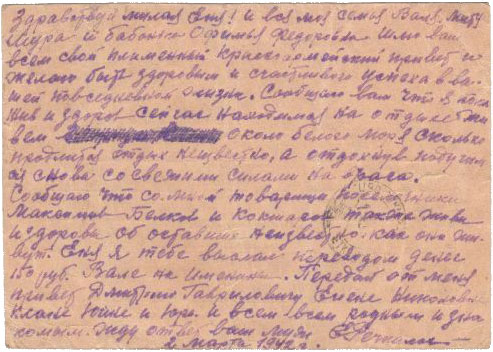 Здравствуй милая Еня! и вся моя семья Валя, Митя
Шура и бабонька Офимья Федоровна Шлю вам
всем свой пламенный красноармейский привет и
желаю быть здоровыми и счастливого успеха в ва-
шей повседневной жизни. Сообщаю вам что я пока
жив и здоров сейчас находимся на отдыхе жи
вем около белого моря сколько
продлится отдых неизвестно, а отдохнув
снова со свежими силами на врага.
Сообщаю что со мной товарищи
Максимов Белков и также живы
и здоровы об остальных неизвестно как они жи
вут! Еня я тебе выслал переводом денег
150 руб. Вале на именины. Передай от меня
привет Дмитрию Гавриловичу Елене Николаев
Клане Юше и Юре и всем всем родным и зна
комым. жду ответ ваш
2 марта 1942 г.